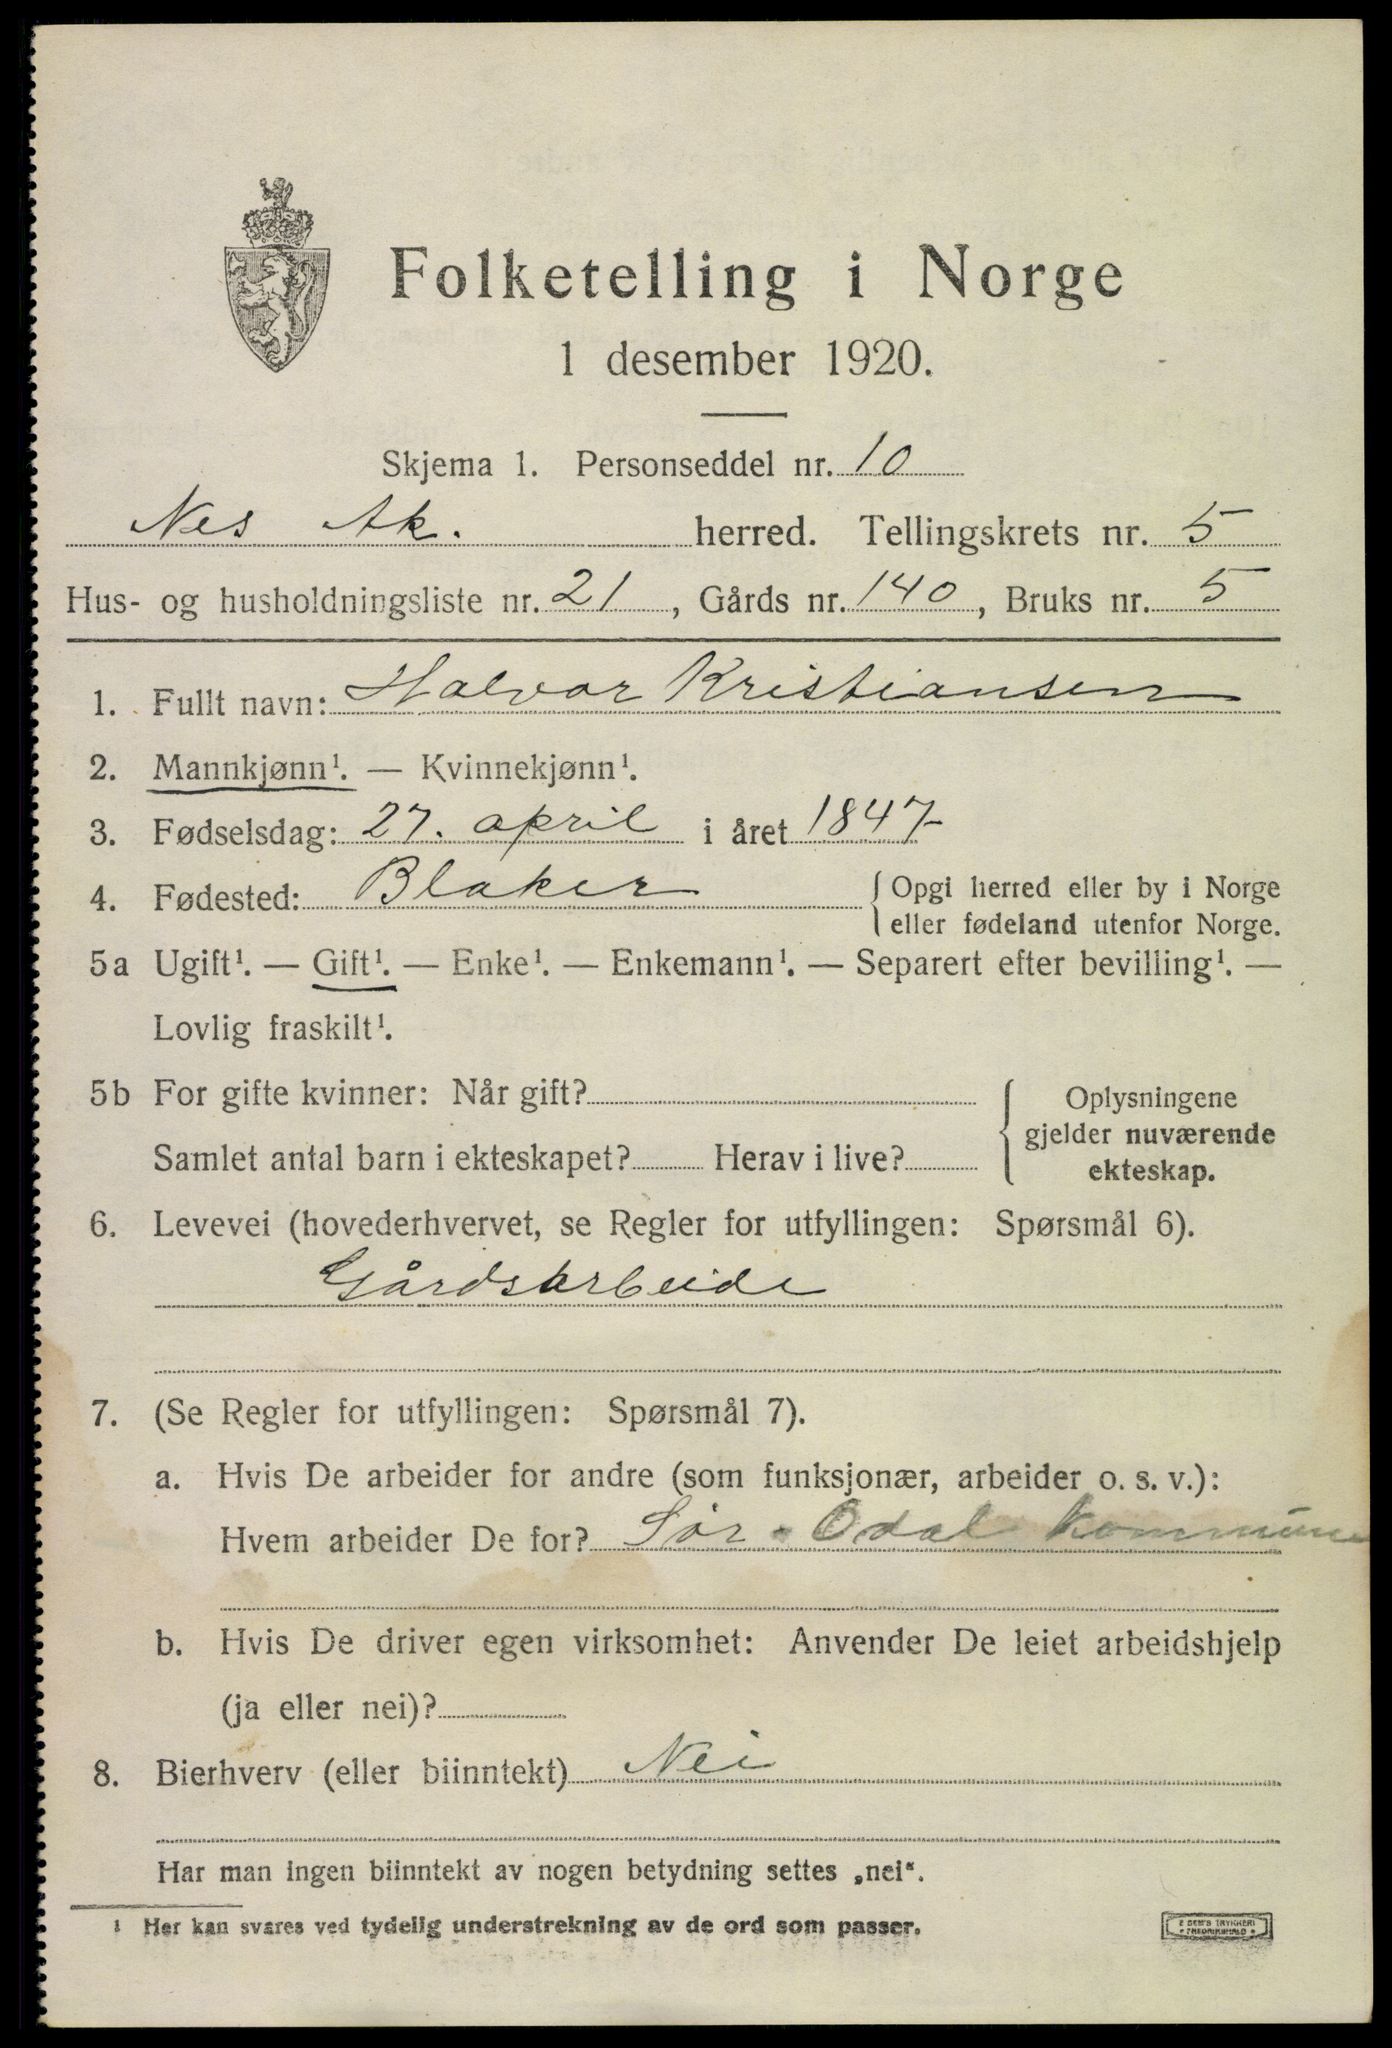 Folketelling i Norge
1 desember 1920.
Skjema 1. Personseddel nr. 10
Nes Ak. herred. Tellingskrets nr. 5
Hus- og husholdningsliste nr. 21, Gårds nr. 140, Bruks nr. 5
1. Fullt navn: Halvor Kristiansen
2. Mannkjønn¹. — Kvinnekjønn¹.
3. Fødselsdag: 27. april i året 1847
4. Fødested: Blaker { Opgi herred eller by i Norge
eller fødeland utenfor Norge.
5a Ugift¹. — Gift¹. — Enke¹. — Enkemann¹. — Separert efter bevilling¹. —
Lovlig fraskilt¹.
5b For gifte kvinner: Når gift? { Oplysningene
gjelder nuværende
Samlet antal barn i ekteskapet? Herav i live? ekteskap.
6. Levevei (hovederhvervet, se Regler for utfyllingen: Spørsmål 6).
Gårdsarbeide
7. (Se Regler for utfyllingen: Spørsmål 7).
a. Hvis De arbeider for andre (som funksjonær, arbeider o. s. v.):
Hvem arbeider De for? Sør-Odal kommune
b. Hvis De driver egen virksomhet: Anvender De leiet arbeidshjelp
(ja eller nei)?
8. Bierhverv (eller biinntekt) Nei
Har man ingen biinntekt av nogen betydning settes „nei“.
¹ Her kan svares ved tydelig understrekning av de ord som passer.
E SEM'S TRYKKERI
FREDRIKSHALD